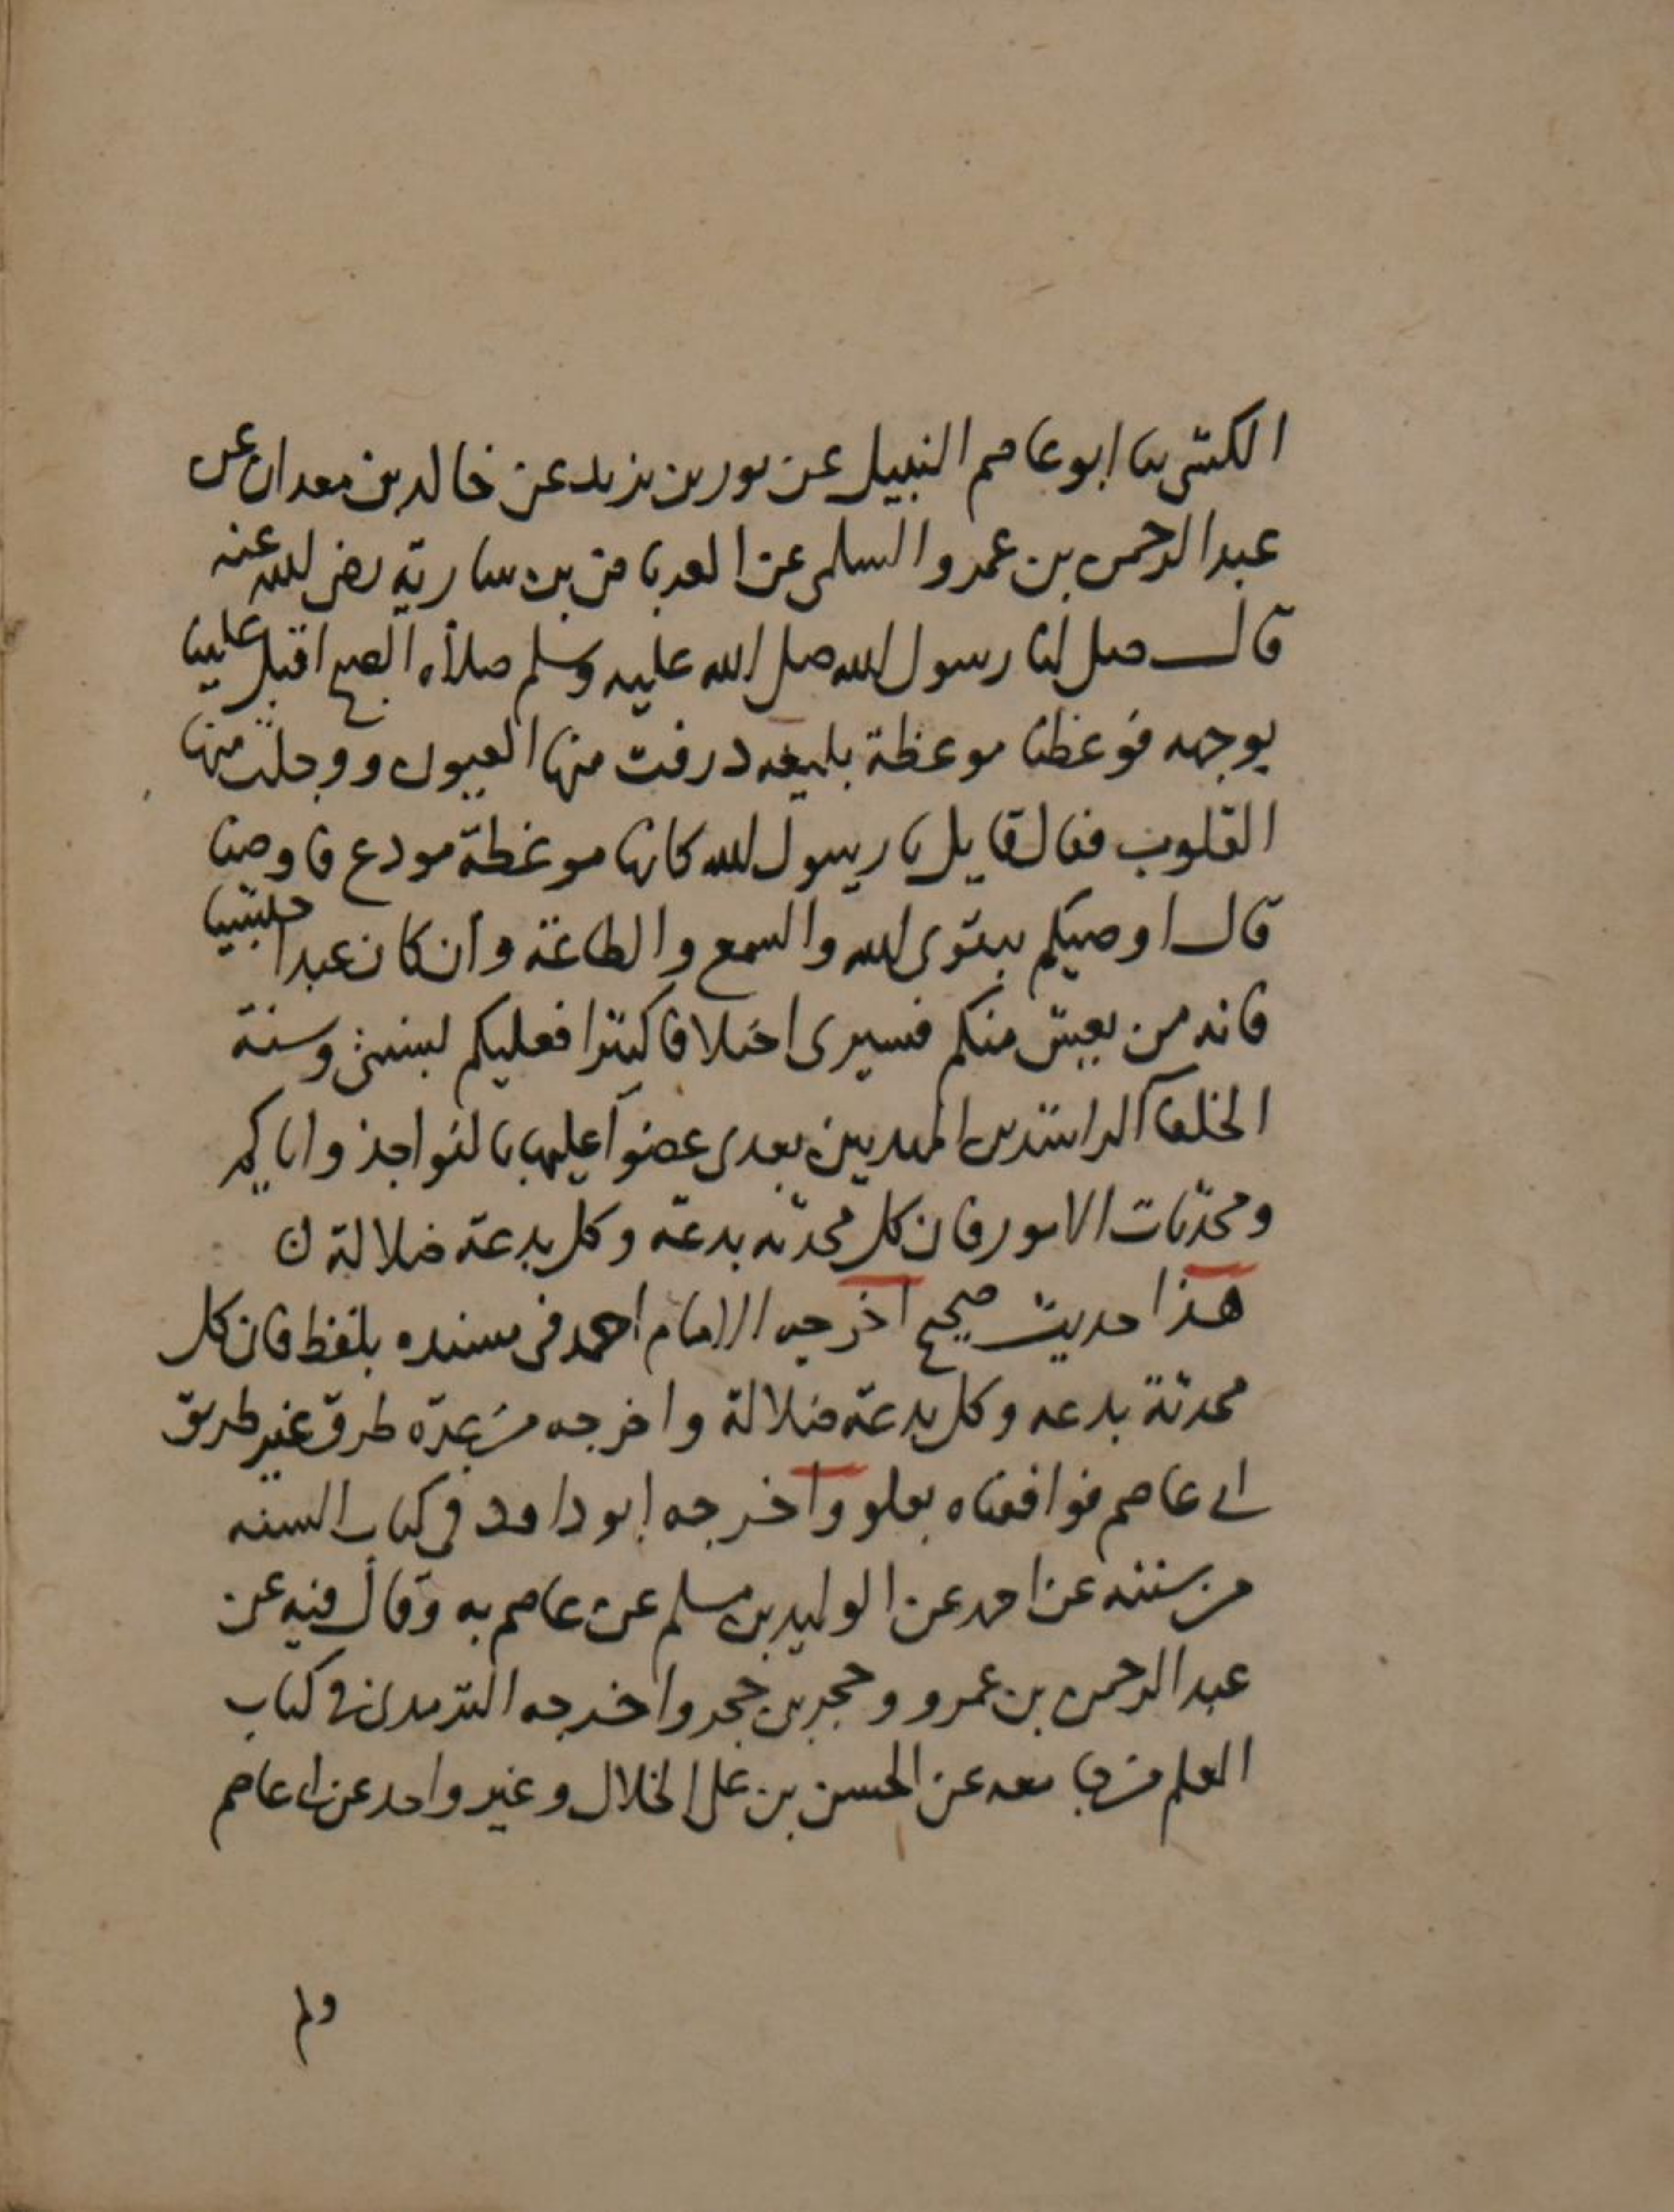 الكشي ثنا ابو عاصم النبيل عن ثور بن يزيد عن خالد بن معدان عن
عبد الرحمن بن عمرو السلمي عن العرباض بن سارية رضي الله عنه
قال صلى لنا رسول الله صلى الله عليه وسلم صلاة الصبح اقبل علينا
بوجهه فوعظنا موعظة بليغه ذرفت منها العيون ووجلت منها
القلوب فقال قايل يا رسول الله كانها موعظة مودع فاوصنا
قال اوصيكم بتقوى الله والسمع والطاعة وان كان عبدا حبشيا
فانه من يعيش منكم فسيرى اختلافا كثيرا فعليكم بسنتي وسنة
الخلفآ الراشدين المهديين بعدى عضوا عليها بالنواجذ واياكم
ومحدثات الامور فان كل محدثه بدعة وكل بدعة ضلالة ن
هذا حديث صحيح اخرجه الامام احمد في مسنده بلفظ فان كل
محدثة بدعه وكل بدعة ضلالة واخرجه من عدة طرق غير طريق
ابى عاصم فوافقناه بعلو واخرجه ابو داود في كتاب السنه
من سننه عن احمد عن الوليد بن مسلم عن عاصم به وقال فيه عن
عبد الرحمن بن عمرو وحجر بن حجر واخرجه الترمدى في كتاب
العلم من جامعه عن الحسن بن على الخلال وغير واحد عن ابى عاصم
ولم